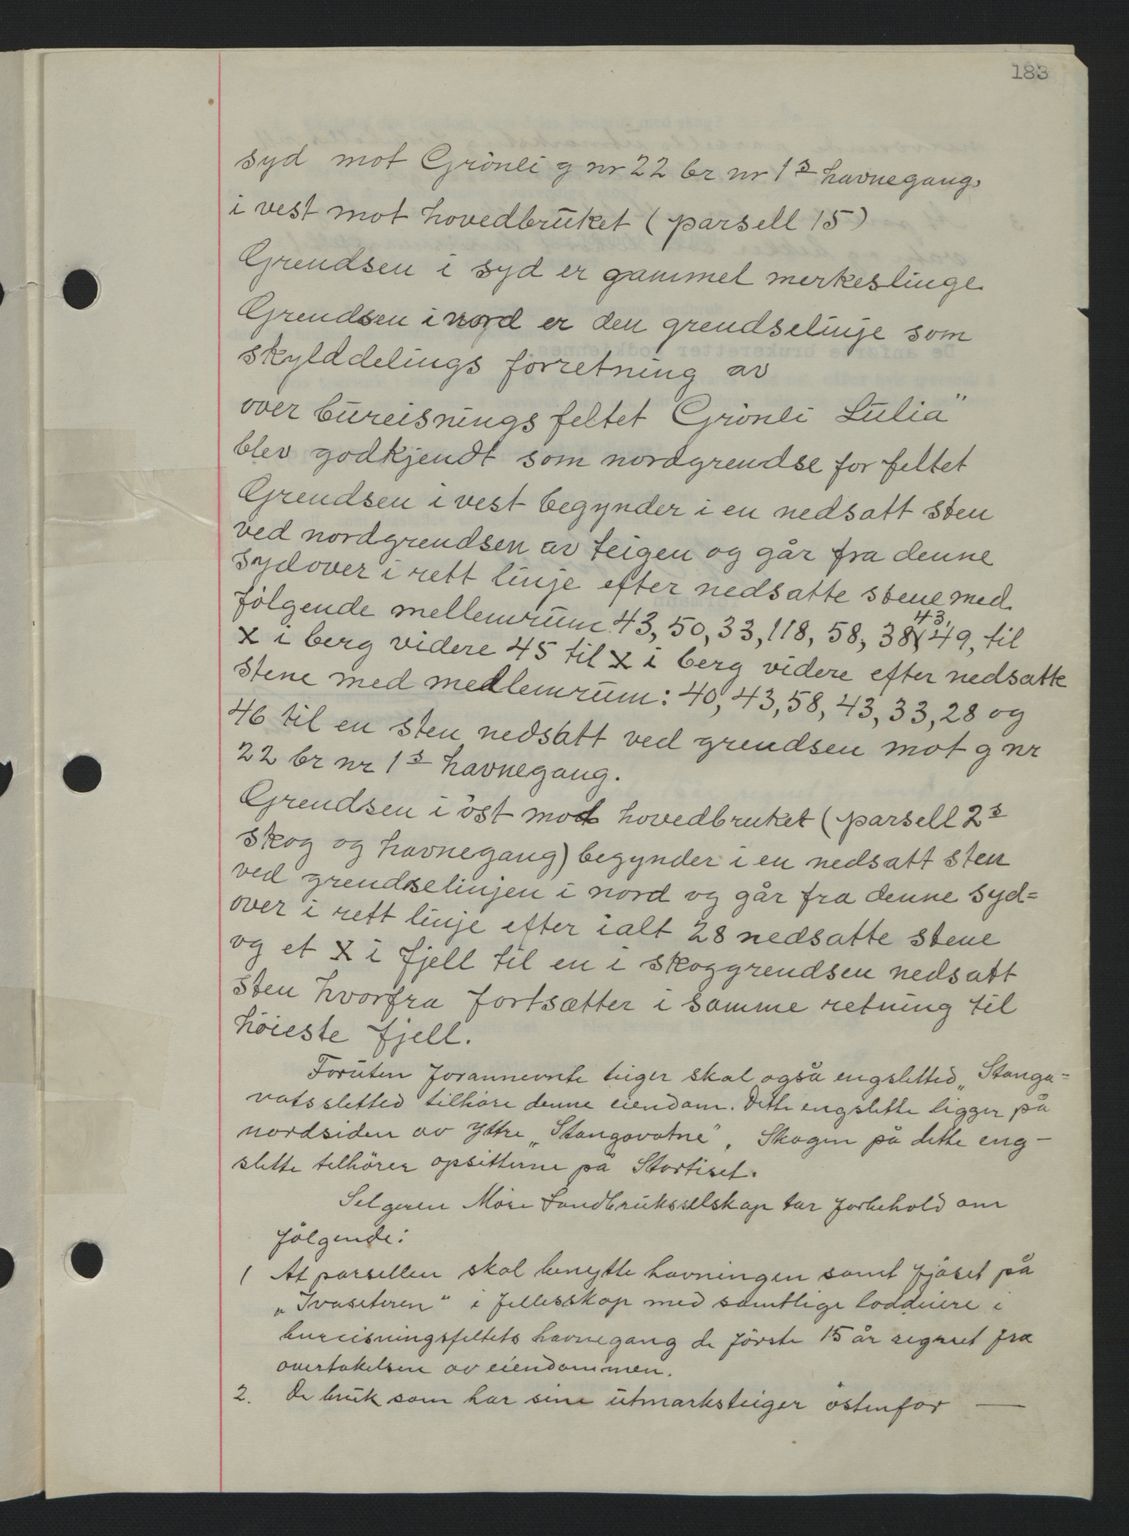 183
syd mot Grönli g nr 22 br nr 1 s havnegang,
i vest mot hovedbrüket (parsell 15)
Grendsen i syd er gammel merkeslinge
Grendsen i nord er den grendselinje som
skylddelings forretning av
over büreisnings feltet Grönli Lülia"
blev godkjendt som nordgrendse for feltet
Grendsen i vest begynder i en nedsatt sten
ved nordgrendsen av teigen og går fra denne
sydover i rett linje efter nedsatte stene med
følgende mellemrüm 43, 50, 33, 118, 58, 38, 43, 49, til
x i berg videre 45 til x i berg videre efter nedsatte
stene med medlemrüm: 40, 43, 58, 43, 33, 28 og
46 til en sten nedsatt ved grendsen mot g nr
22 br nr 1 s havnegang.
Grendsen i öst mod hovedbruket (parsell 2 s
skog og havnegang) begynder i en nedsatt sten
ved grendselinjen i nord og går fra denne syd=
over i rett linje efter ialt 28 nedsatte stene
og et x i fjell til en i skoggrendsen nedsatt
sten hvorfra fortsætter i samme retning til
höieste fjell.
Forüten forannevnte teiger skal også engsletted „Stanga=
vatssletted tilhöre denne eiendom. Dette engslette ligger på
nordsiden av Ytre „Stangovatne". Skogen på dette eng-
slette tilhörer opsitterne på Stortiset.
Selgeren Möre Landbrüksselskap tar forbehold om
fölgende:
1 At parsellen skal benytte havningen samt fjöset på
„Ivasetren" i fellesskap med samtlige loddeiere i
bureisningsfeltets havnegang de förste 15 år regnet fra
overtakelsen av eiendommen.
2. De brük som har sine ütmarksteiger östenfor —